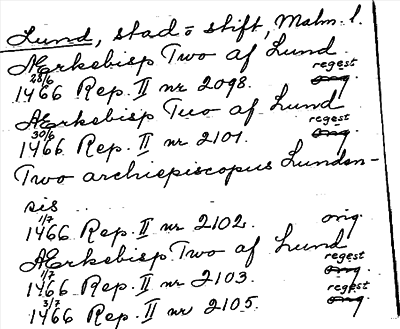 Lund, stad o stift, Malm. l.
Ærkebisp Two af Lund
28/6 regest
1466 Rep. II nr 2098. orig.
Ærkebisp Tuo af Lund
30/6 regest
1466 Rep. II nr 2101. orig.
Two archiepiscopus Lunden-
sis
1/7
1466 Rep. II nr 2102. orig.
Ærkebisp Two af Lund
1/7 regest
1466 Rep. II nr 2103. orig.
3/7 regest
1466 Rep. II nr 2105. orig.